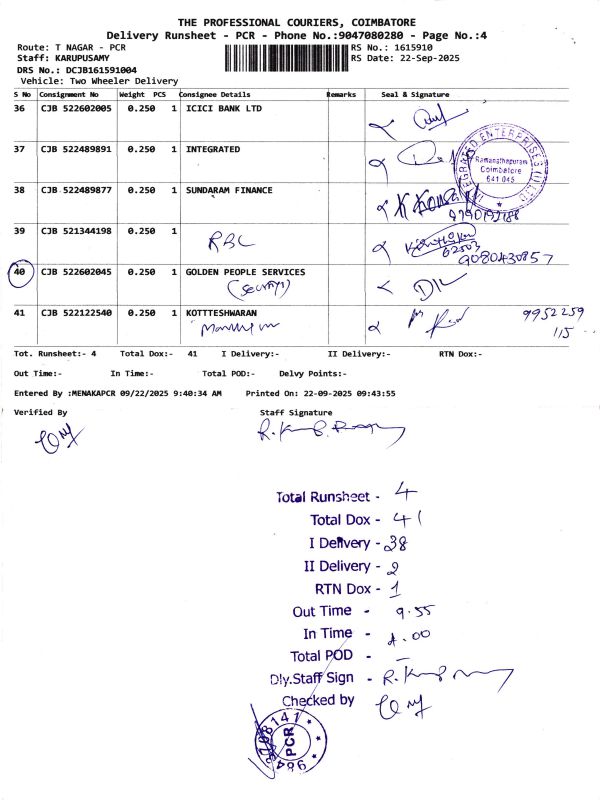 THE PROFESSIONAL COURIERS, COIMBATORE
Delivery Runsheet - PCR - Phone No.:9047080280 - Page No.:4
Route: T NAGAR - PCR
RS No.: 1615910
Staff: KARUPUSAMY
RS Date: 22-Sep-2025
DRS No.: DCJB161591004
Vehicle: Two Wheeler Delivery
S No Consignment No Weight PCS Consignee Details Remarks Seal & Signature
36 CJB 522602005 0.250 1 ICICI BANK LTD
37 CJB 522489891 0.250 1 INTEGRATED
INTEGRATED ENTERPRISES (I) LTD
Ramanathapuram
Coimbatore
641 045
38 CJB 522489877 0.250 1 SUNDARAM FINANCE
39 CJB 521344198 0.250 1
RBL
62503
9080430857
40 CJB 522602045 0.250 1 GOLDEN PEOPLE SERVICES
(Security)
41 CJB 522122540 0.250 1 KOTTTESHWARAN
9952259
115
Tot. Runsheet:- 4 Total Dox:- 41 I Delivery:- II Delivery:- RTN Dox:-
Out Time:- In Time:- Total POD:- Delvy Points:-
Entered By :MENAKAPCR 09/22/2025 9:40:34 AM Printed On: 22-09-2025 09:43:55
Verified By Staff Signature
Total Runsheet - 4
Total Dox - 41
I Delivery - 38
II Delivery - 2
RTN Dox - 1
Out Time - 9.55
In Time - 4.00
Total POD - —
Dly.Staff Sign -
Checked by
PCR